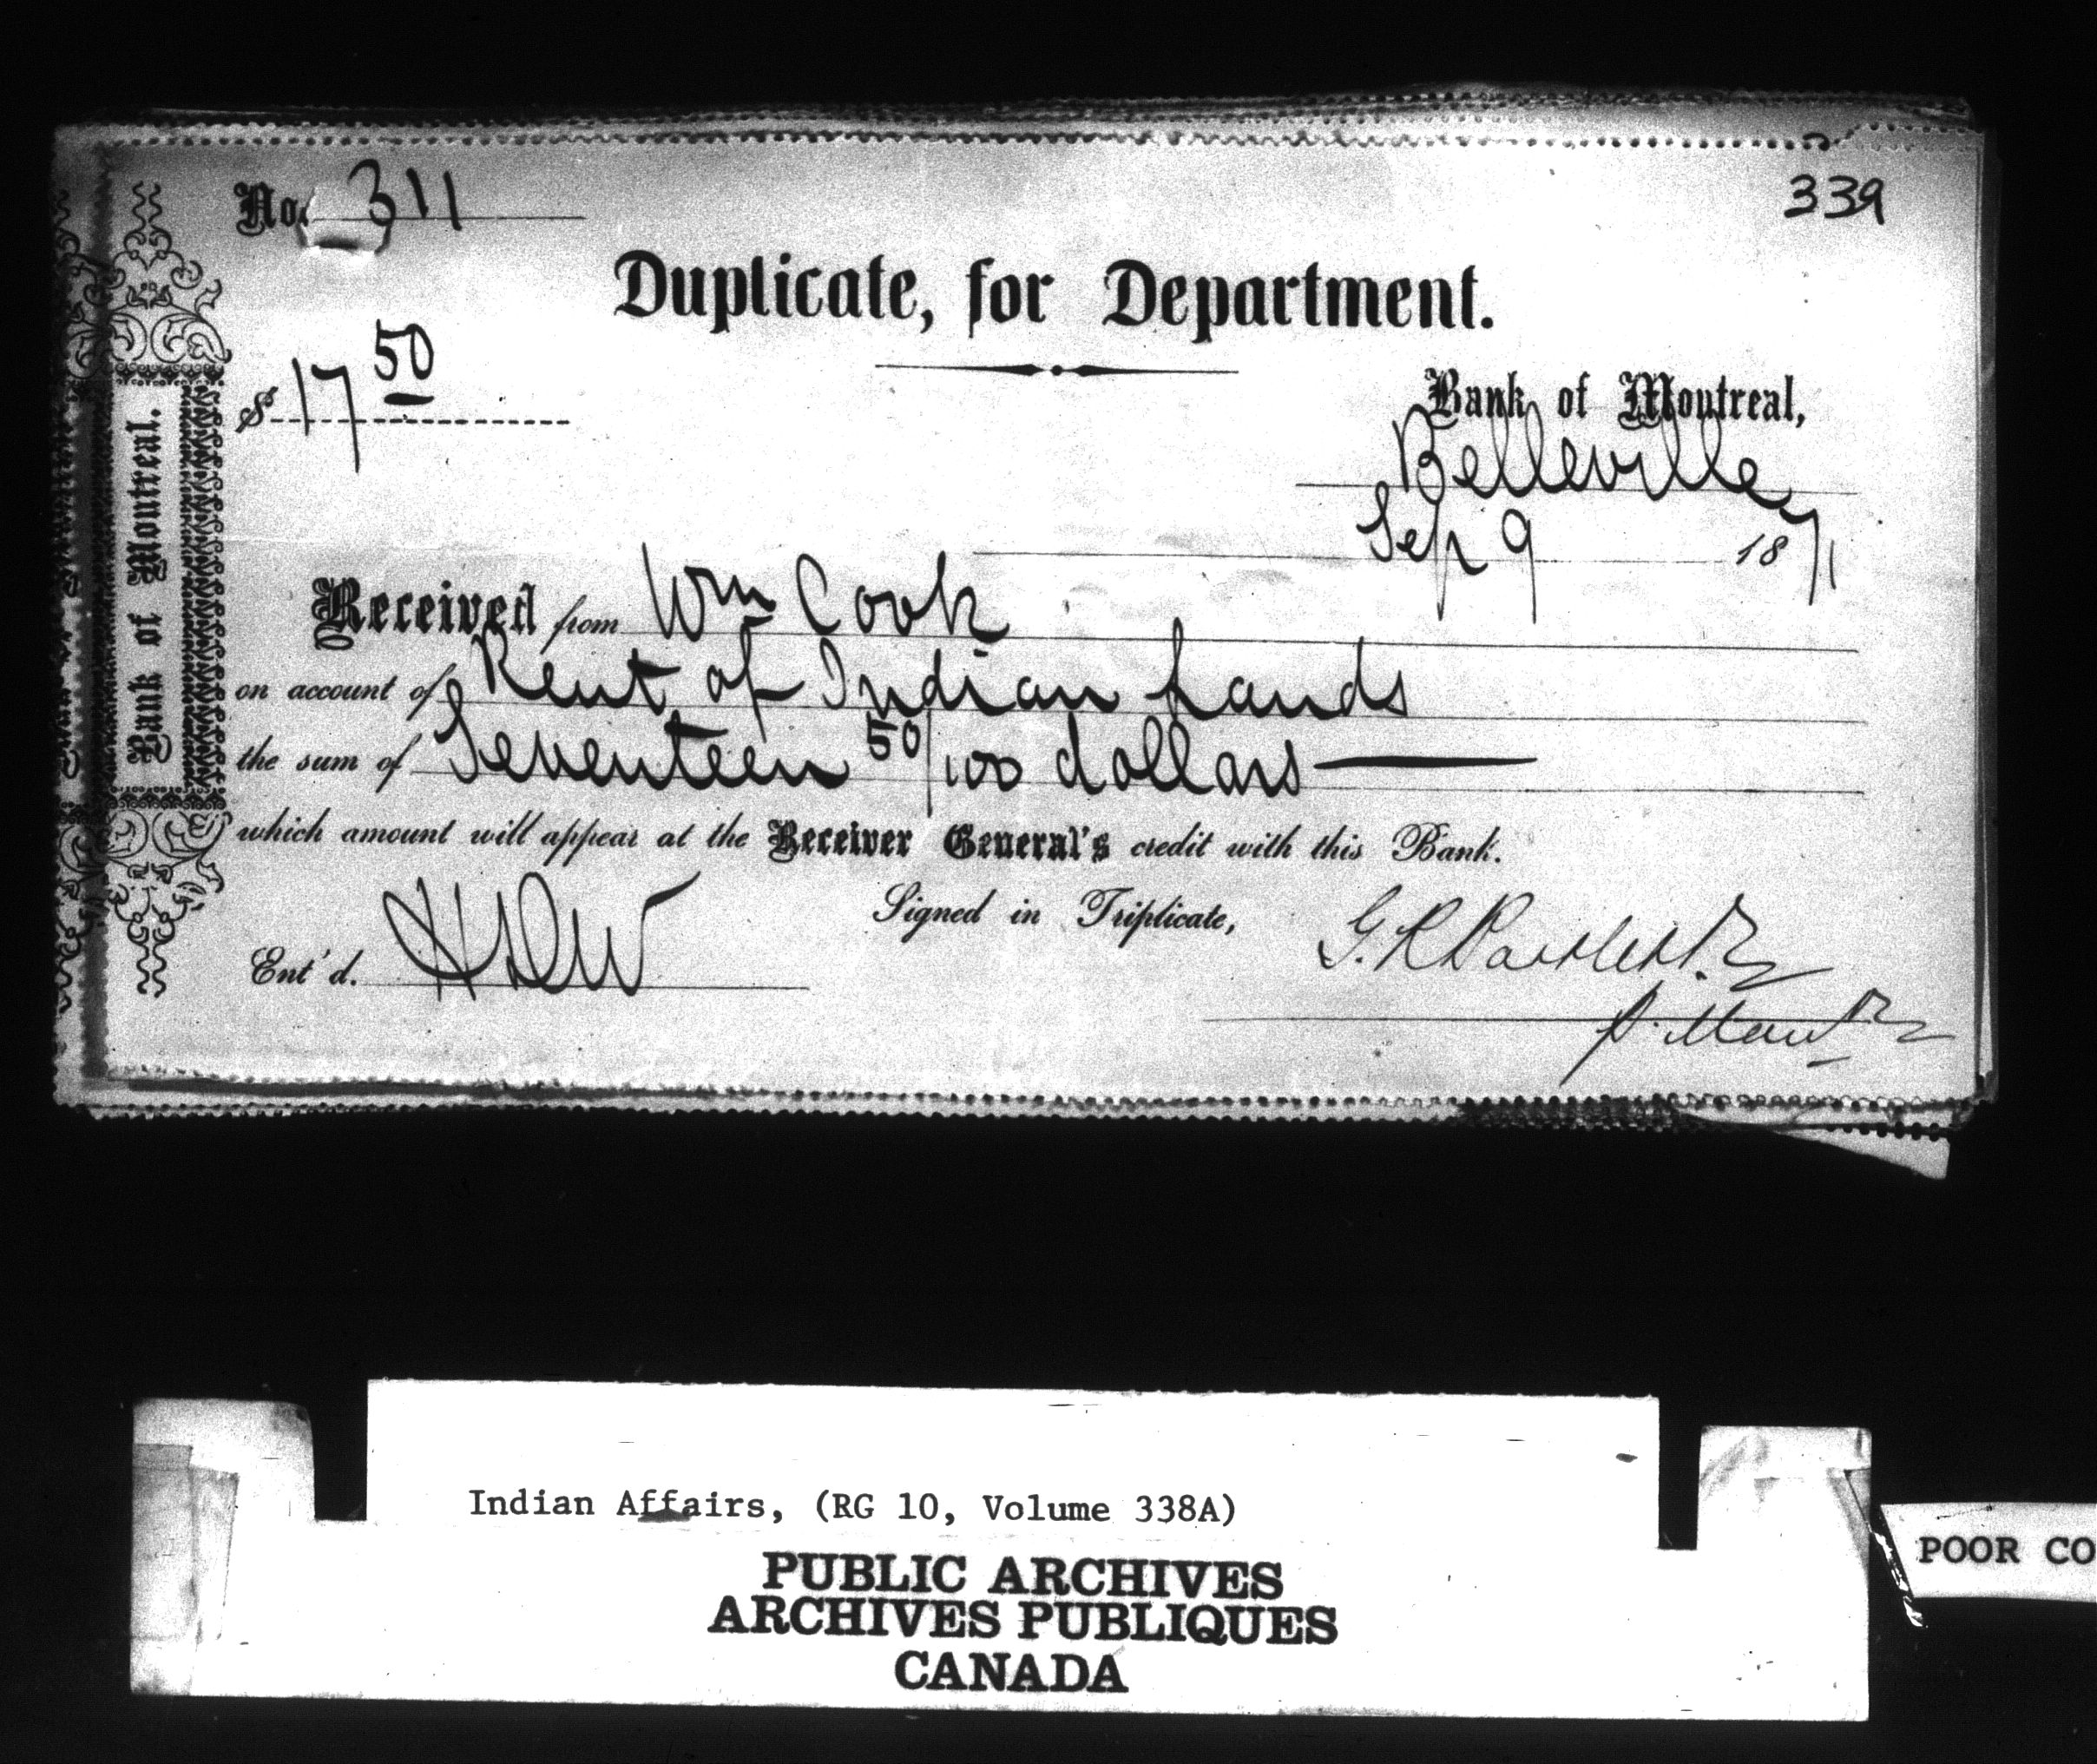 No. 311
339
Duplicate, for Department.
$ 17 50
Bank of Montreal,
Belleville
Sep 9 1871
Received from Wm Cook
on account of Rent of Indian Lands
the sum of Seventeen 50/100 dollars
which amount will appear at the Receiver General's credit with this Bank.
Signed in Triplicate,
Ent'd.
G. R. Bartlett
Bank of Montreal.
Indian Affairs, (RG 10, Volume 338A)
PUBLIC ARCHIVES
ARCHIVES PUBLIQUES
CANADA
POOR CO